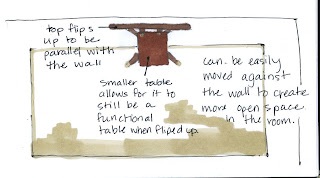 top flips
up to be
parallel with
the wall
Smaller table
allows for it to
still be a
functional
table when fliped up
can be easily
moved against
the wall to create
more open space
in the room.